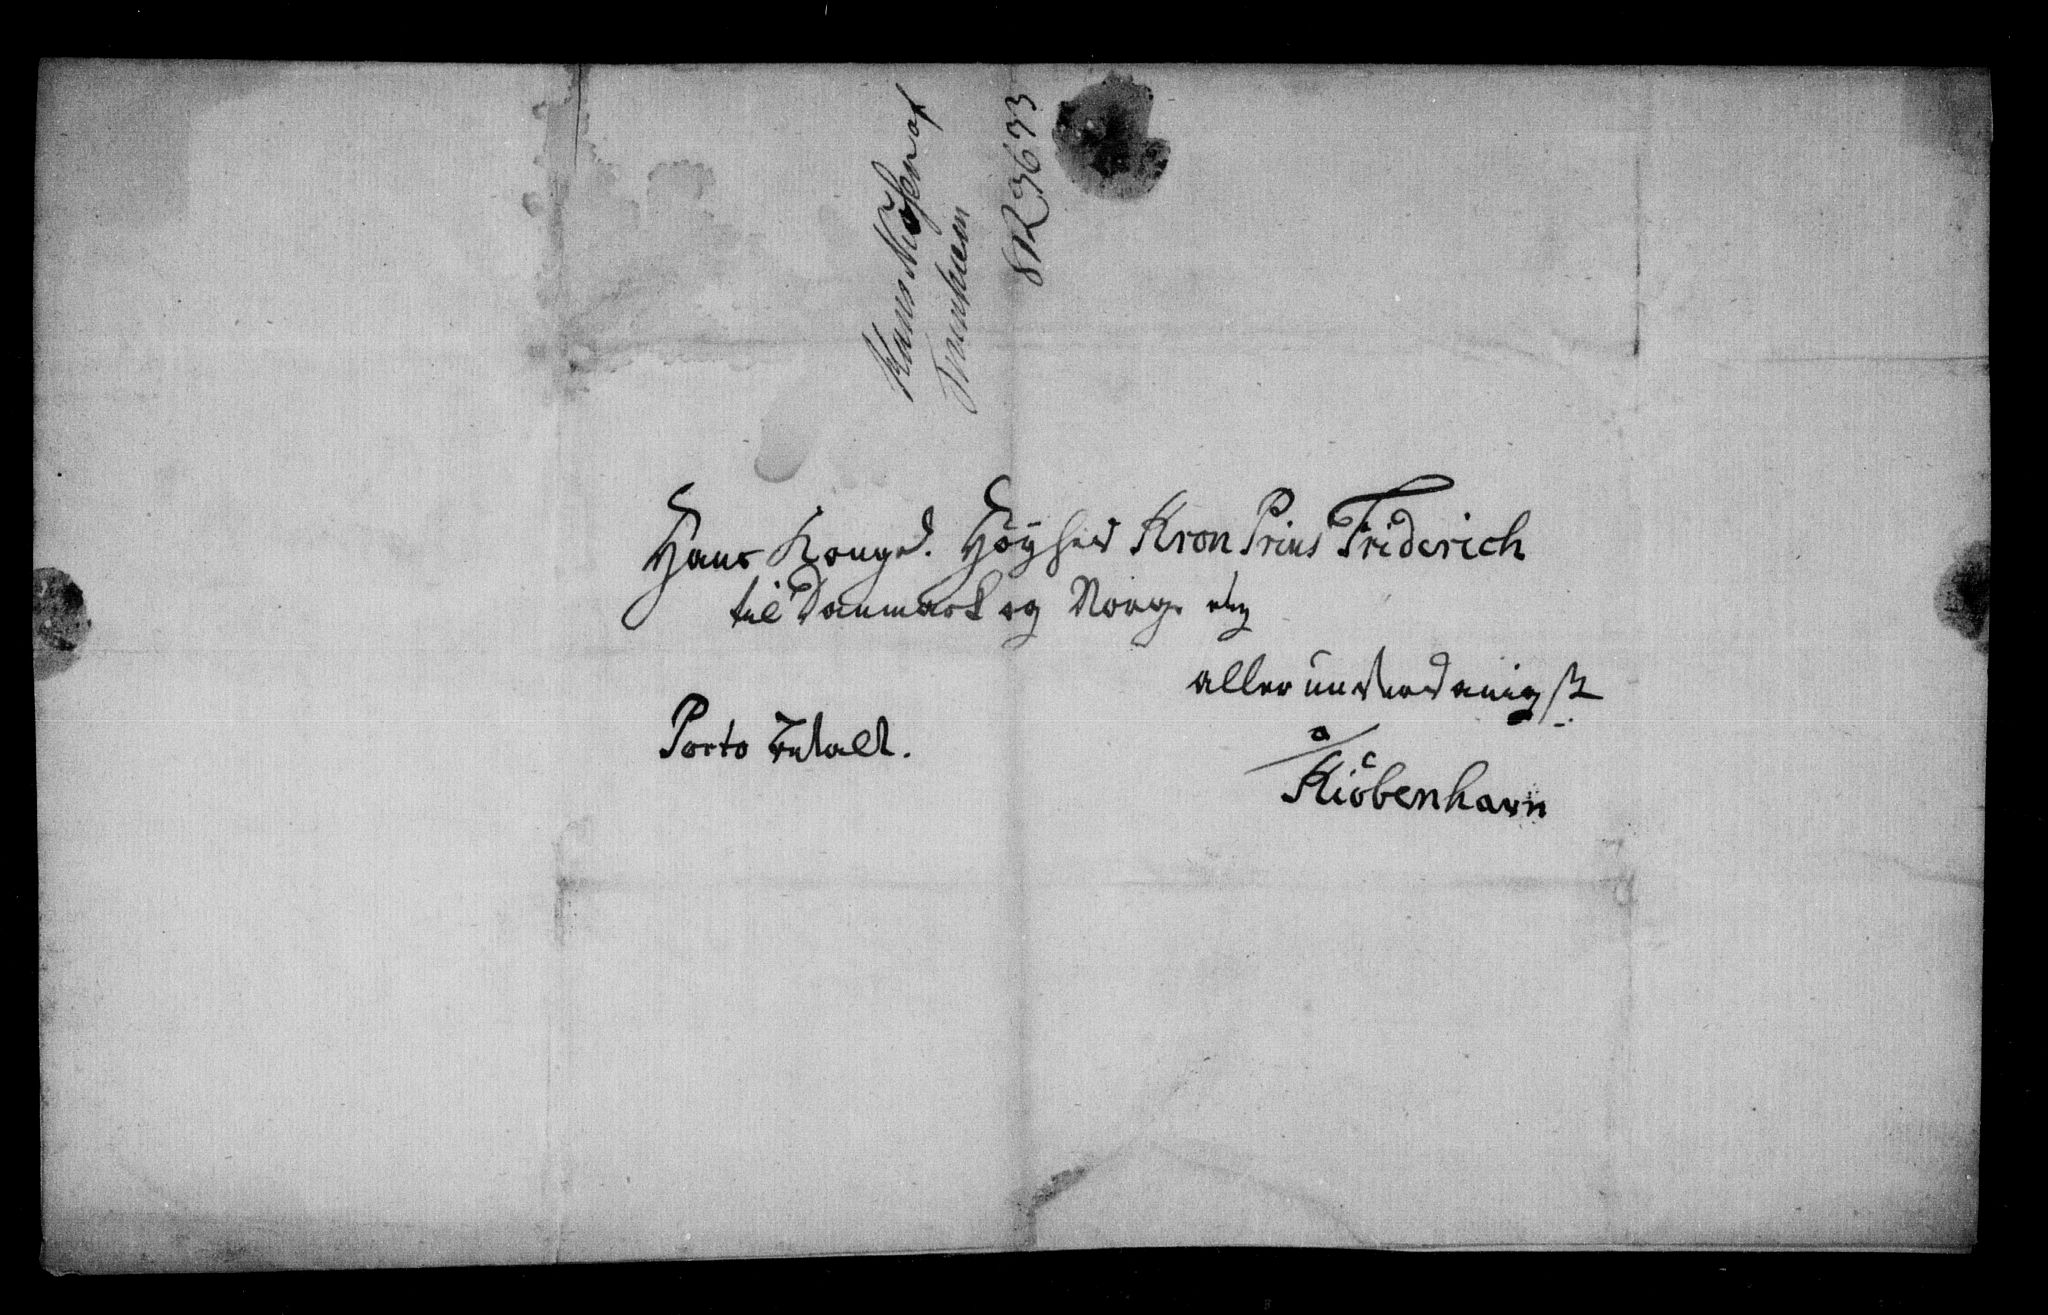 Hans Kongel. Höyhed Kron Prins Friderich
til Danmark og Norge etz
alleründerdanigst
a
Kiöbenhavn
Porto betalt.
af
Trunhiem
8R3633